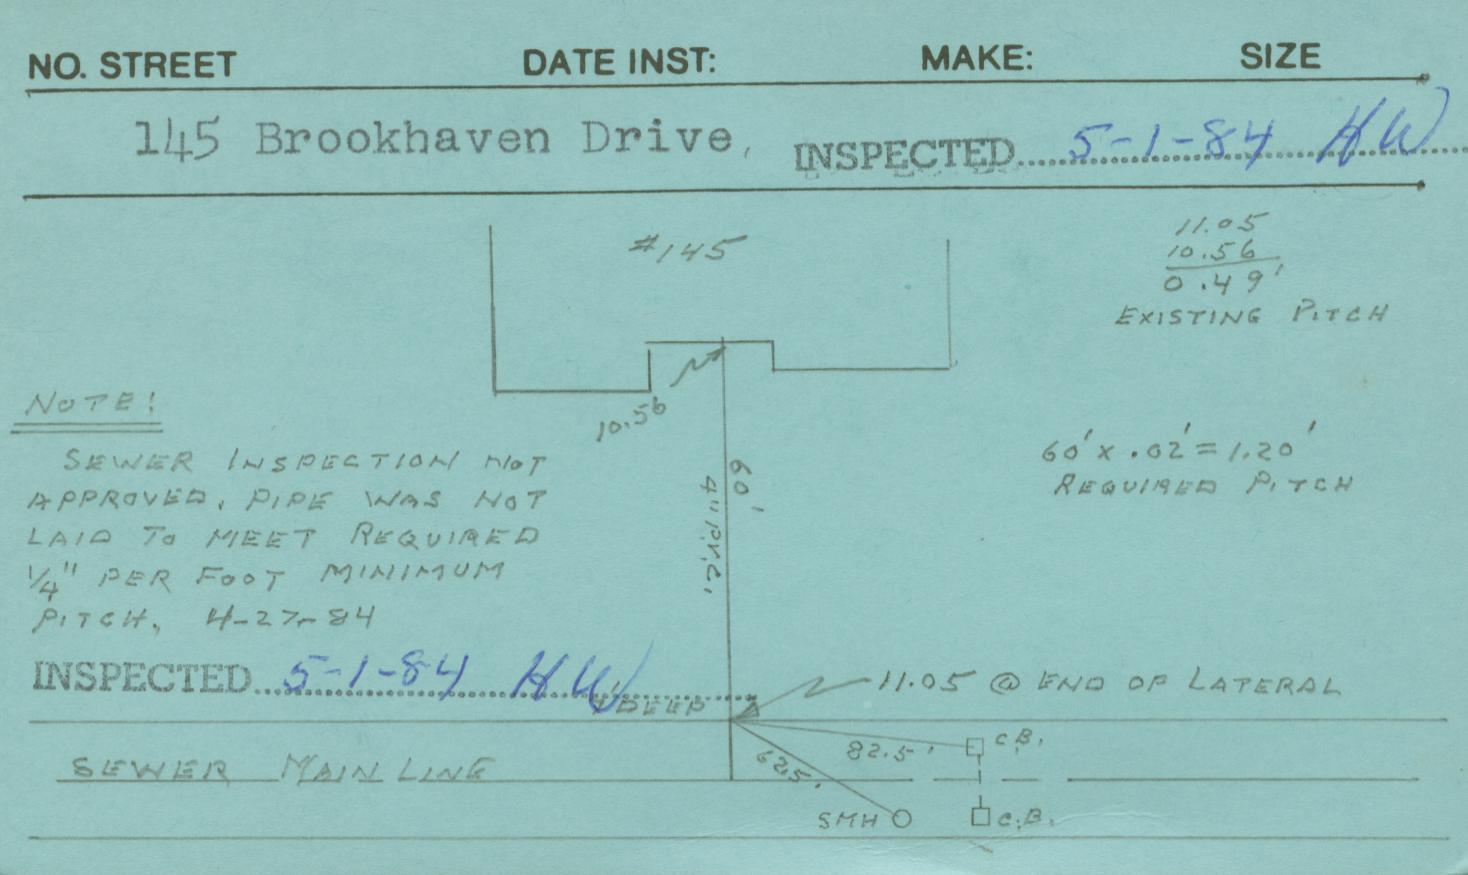 NO. STREET DATE INST: MAKE: SIZE
145 Brookhaven Drive, INSPECTED 5-1-84 HW
#145
11.05
10.56
0.49'
EXISTING PITCH
10.56
60'
4" P.V.C.
60' x .02' = 1.20'
REQUIRED PITCH
NOTE!
SEWER INSPECTION NOT
APPROVED. PIPE WAS NOT
LAID TO MEET REQUIRED
1/4" PER FOOT MINIMUM
PITCH. 4-27-84
INSPECTED 5-1-84 HW
DEEP
11.05 @ END OF LATERAL
82.5'
C.B.
62.5'
SEWER MAIN LINE
SMH
C.B.